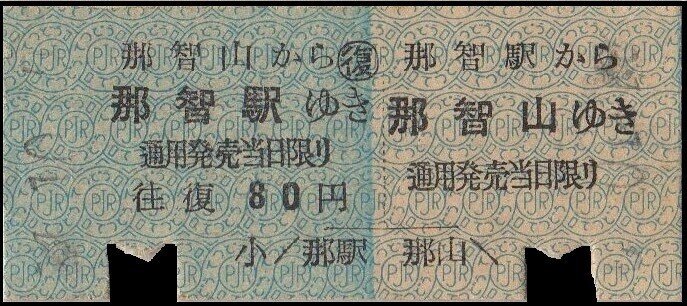 那智山から ㊝復
那智駅ゆき
通用発売当日限り
往復 80円
那智駅から
那智山ゆき
通用発売当日限り
小/那駅 那山\